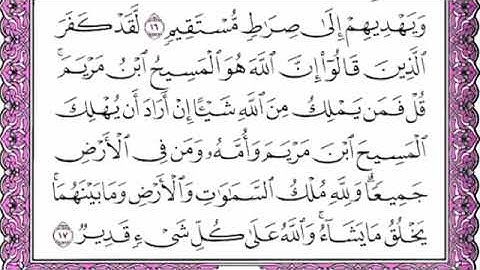 وَيَهْدِيهِمْ إِلَىٰ صِرَٰطٍ مُّسْتَقِيمٍ ۝١٦ لَّقَدْ كَفَرَ
ٱلَّذِينَ قَالُوٓا۟ إِنَّ ٱللَّهَ هُوَ ٱلْمَسِيحُ ٱبْنُ مَرْيَمَ ۚ
قُلْ فَمَن يَمْلِكُ مِنَ ٱللَّهِ شَيْـًٔا إِنْ أَرَادَ أَن يُهْلِكَ
ٱلْمَسِيحَ ٱبْنَ مَرْيَمَ وَأُمَّهُۥ وَمَن فِى ٱلْأَرْضِ
جَمِيعًا ۗ وَلِلَّهِ مُلْكُ ٱلسَّمَٰوَٰتِ وَٱلْأَرْضِ وَمَا بَيْنَهُمَا ۚ
يَخْلُقُ مَا يَشَآءُ ۚ وَٱللَّهُ عَلَىٰ كُلِّ شَىْءٍ قَدِيرٌ ۝١٧